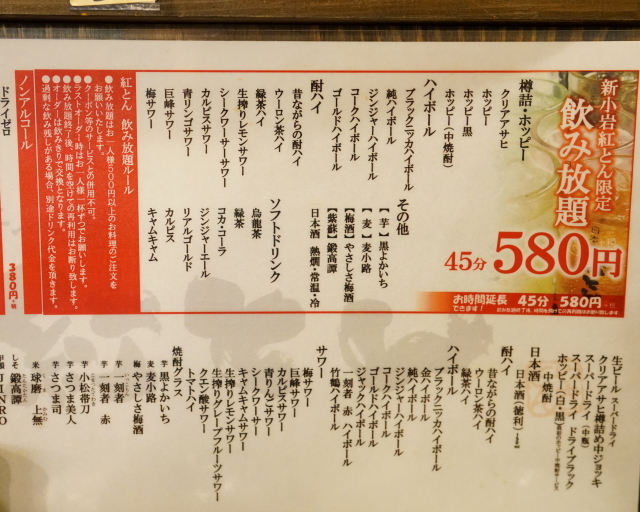 新小岩紅とん限定
飲み放題
45分 580円
お時間延長 45分 580円
できます!
樽詰・ホッピー
クリアアサヒ
ホッピー
ホッピー黒
ホッピー(中焼酎)
ハイボール
ブラックニッカハイボール
純ハイボール
ジンジャーハイボール
コークハイボール
ゴールドハイボール
酎ハイ
昔ながらの酎ハイ
ウーロン茶ハイ
緑茶ハイ
生搾りレモンサワー
シークワーサーサワー
カルピスサワー
青リンゴサワー
巨峰サワー
梅サワー
その他
【芋】黒よかいち
【麦】麦小路
【梅酒】やさしさ梅酒
【紫蘇】鍛高譚
日本酒 熱燗・常温・冷
ソフトドリンク
烏龍茶
緑茶
コカ・コーラ
ジンジャーエール
リアルゴールド
カルピス
キャムキャム
紅とん 飲み放題ルール
●飲み放題はお一人様500円以上のお料理のご注文を
お願いいたします。
●クーポン等のサービスとの併用不可。
●ラストオーダー時はお一人様一杯ずつでお願いします。
●飲み放題終了後、時間を空けての再利用はお断り致します。
●オーダーは飲みきりで交換となります。
●過剰な飲み残しがある場合、別途ドリンク代金を頂きます。
ノンアルコール
ドライゼロ
380円
生ビール スーパードライ
クリアアサヒ樽詰め中ジョッキ
スーパードライ(中瓶)
スーパードライ ドライブラック
ホッピー(白・黒)
中焼酎
日本酒
日本酒(徳利)
酎ハイ
昔ながらの酎ハイ
ウーロン茶ハイ
緑茶ハイ
ハイボール
ブラックニッカハイボール
金ハイボール
純ハイボール
ジンジャーハイボール
コークハイボール
ゴールドハイボール
ジャックハイボール
一刻者 赤 ハイボール
竹鶴ハイボール
サワー
梅サワー
巨峰サワー
カルピスサワー
青りんごサワー
シークワーサー
キャムキャムサワー
生搾りレモンサワー
生搾りグレープフルーツサワー
クエン酸サワー
トマトハイ
焼酎グラス
芋 黒よかいち
麦 麦小路
梅 やさしさ梅酒
芋 一刻者
芋 一刻者 赤
芋 小松帯刀
芋 さつま美人
芋 さつま司
米 球磨 上無
しそ 鍛高譚
JINRO